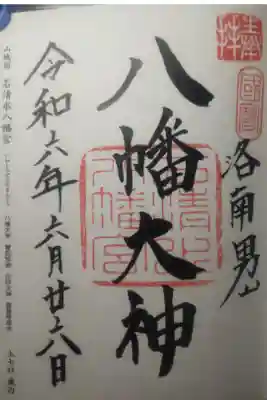 奉拝
國寶
洛南男山
八幡大神
石清水八幡宮
令和六年六月廿六日
山城国 石清水八幡宮